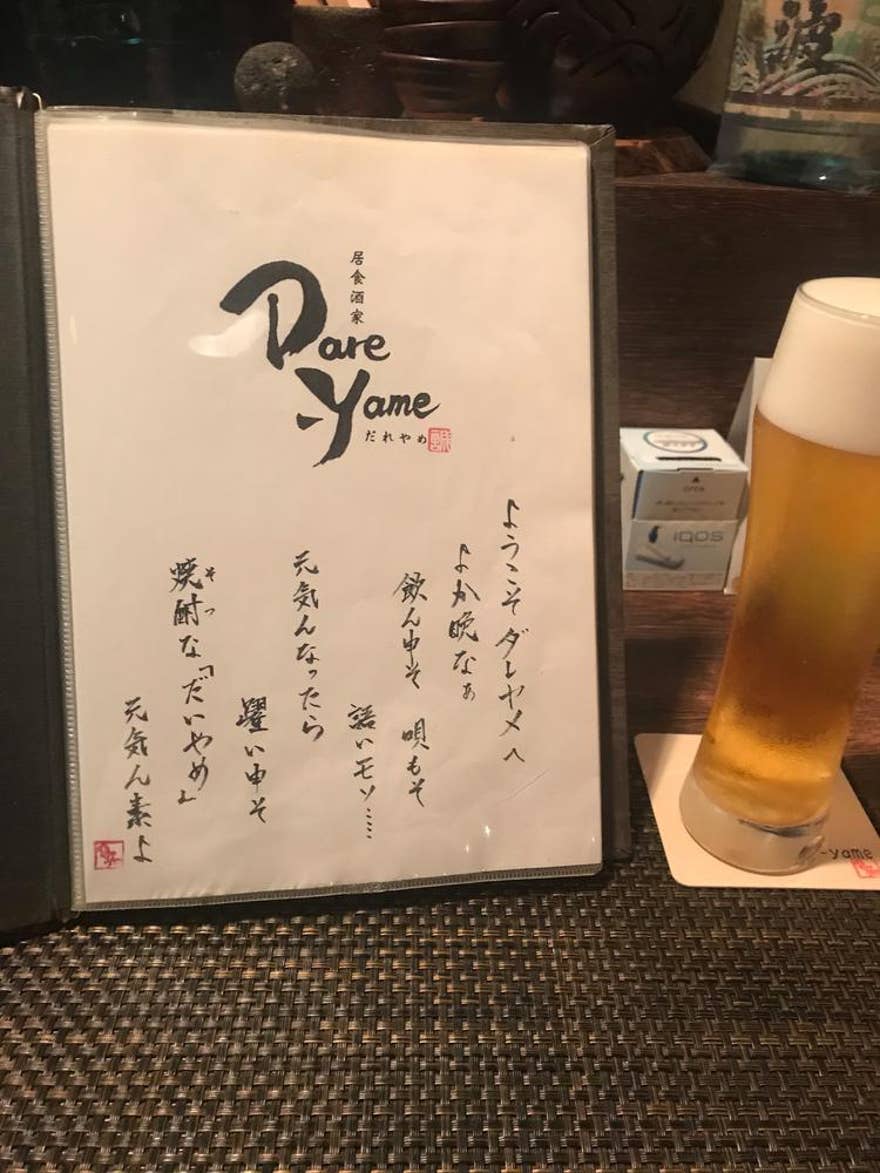 居食酒家
Dare
-Yame
だれやめ
ようこそダレヤメへ
よか晩なぁ
飲ん申そ 唄もそ
語いモソ……
元気んなったら
躍い申そ
焼酎な「だいやめ」
そつ
元気ん素よ
IQOS
-yame
波